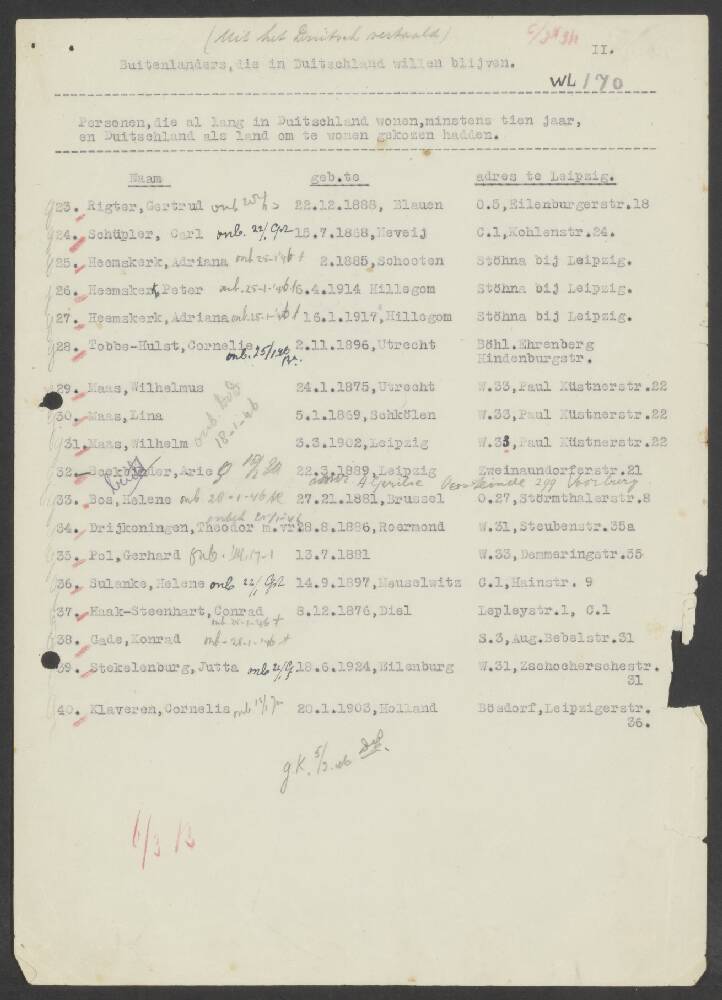 (Uit het Duitsch vertaald)
II.
Buitenlanders, die in Duitschland willen blijven.
WL 170
Personen, die al lang in Duitschland wonen, minstens tien jaar,
en Duitschland als land om te wonen gekozen hadden.
Naam geb.te adres te Leipzig.
23. Rigter, Gertrul onb 22.12.1888, Blauen O.5, Eilenburgerstr.18
24. Schüpler, Carl onb. 22/1 15.7.1868, Meveij C.1, Kohlenstr.24.
25. Heemskerk, Adriana onb 25-1-'46 + 2.1885, Schooten Stöhna bij Leipzig.
26. Heemskerk, Peter onb. 25-1-'46 16.4.1914 Hillegom Stöhna bij Leipzig.
27. Heemskerk, Adriana onb. 25-1-'46 + 16.1.1917, Hillegom Stöhna bij Leipzig.
28. Tobbe-Hulst, Cornelia 2.11.1896, Utrecht Böhl.Ehrenberg
onb. 25/1 Hindenburgstr.
29. Maas, Wilhelmus 24.1.1875, Utrecht W.33, Paul Küstnerstr.22
30. Maas, Lina 5.1.1869, Schkölen W.33, Paul Küstnerstr.22
onb.
18-1-46
31. Maas, Wilhelm 3.3.1902, Leipzig W.33, Paul Küstnerstr.22
32. Boekbinder, Arie 22.3.1889, Leipzig Zweinaundorferstr.21
299 Voorburg
33. Bos, Helene onb 28-1-46 27.21.1881, Brussel O.27, Störmthalerstr.8
34. Drijkoningen, Theodor m.vr 28.8.1886, Roermond W.31, Steubenstr.35a
35. Pol, Gerhard onb. 13.7.1881 W.33, Demmeringstr.55
36. Sulanke, Helene onb 22/1 14.9.1897, Meuselwitz C.1, Hainstr. 9
37. Haak-Steenhart, Conrad 8.12.1876, Diel Lepleystr.1, C.1
38. Gade, Konrad onb - 25-1-'46 + S.3, Aug.Bebelstr.31
39. Stekelenburg, Jutta onb 18.6.1924, Eilenburg W.31, Zschocherschestr.
31
40. Klaveren, Cornelis onb 20.1.1903, Holland Bösdorf, Leipzigerstr.
36.
g.K. 5/2.46
6/3 B